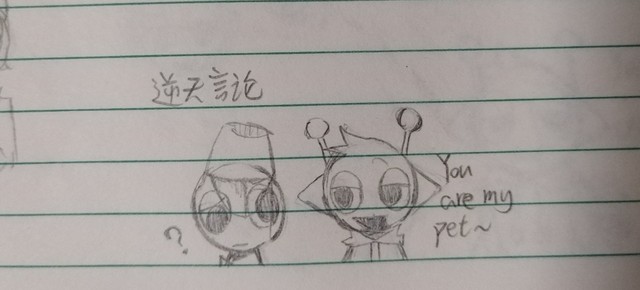 逆天言论
?
You
are my
pet~